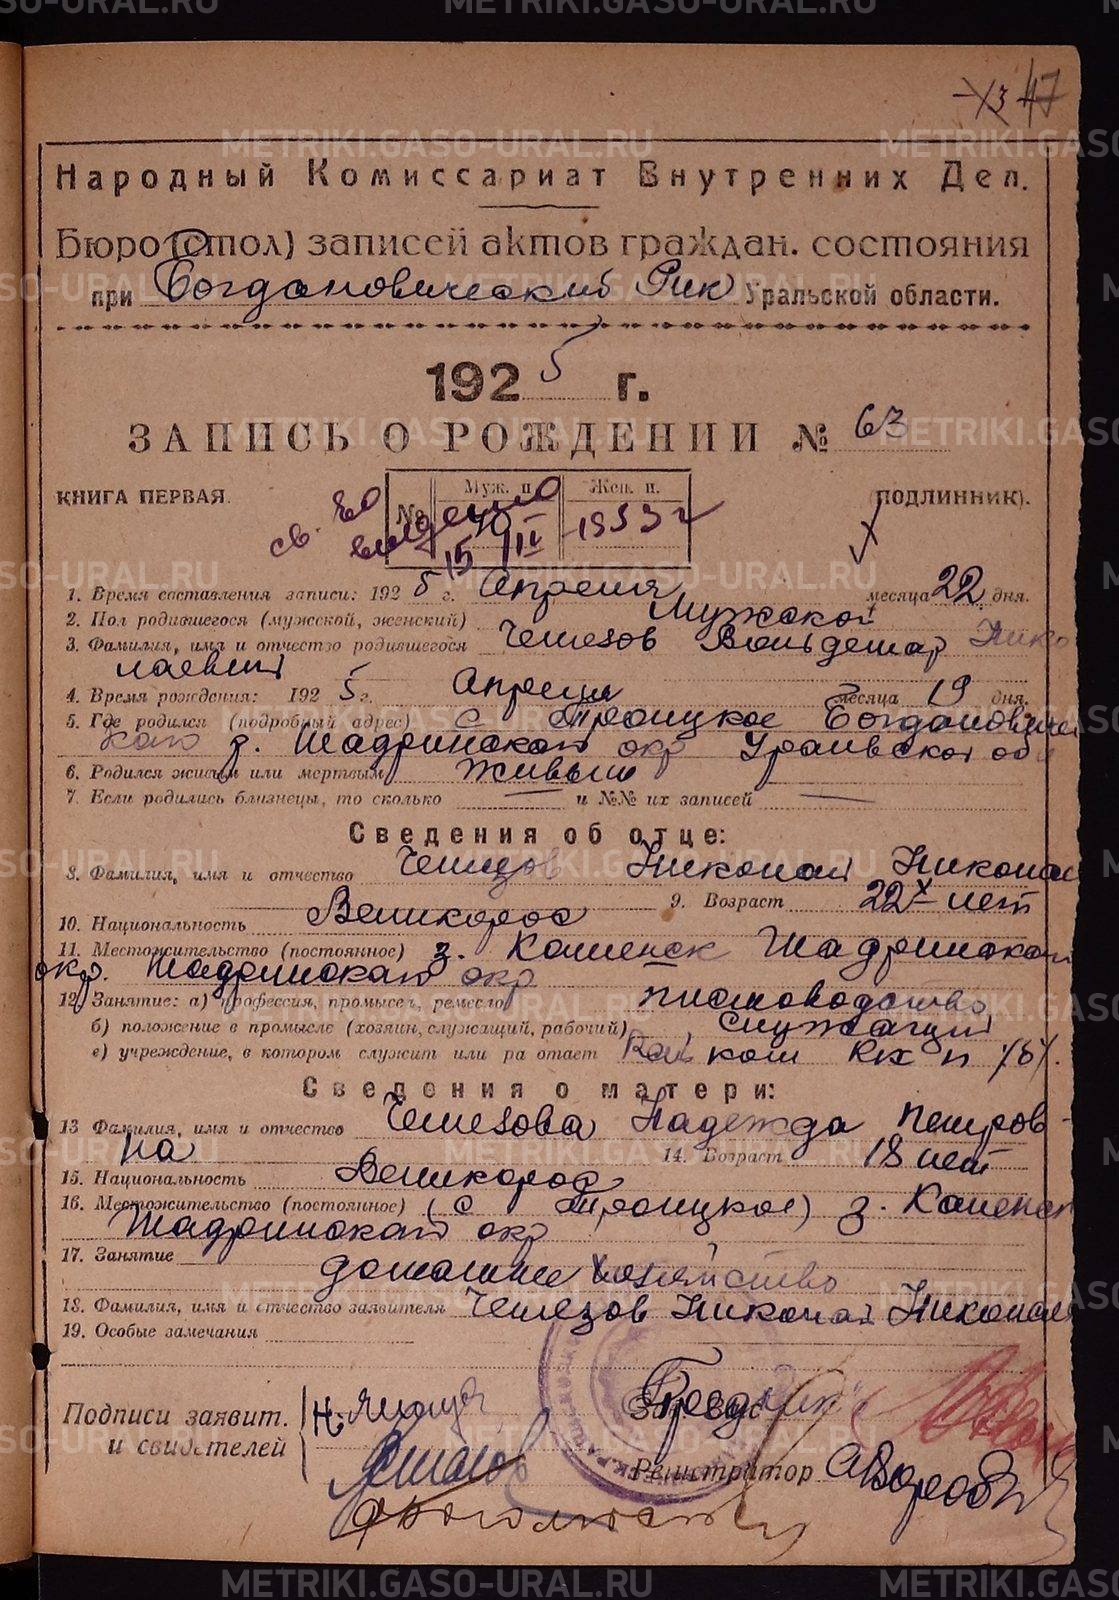 47
Народный Комиссариат Внутренних Дел.
Бюро (стол) записей актов граждан. состояния
при Богдановический Рик Уральской области.
1925 г.
ЗАПИСЬ О РОЖДЕНИИ № 63
КНИГА ПЕРВАЯ. (ПОДЛИННИК).
№ Муж. п. Жен. п.
св. 15/IV 1953 г
1. Время составления записи: 1925 г. Апреля месяца 22 дня.
2. Пол родившегося (мужской, женский) Мужской
3. Фамилия, имя и отчество родившегося Чемезов Вольдемар Нико
лаевич
4. Время рождения: 1925 г. Апреля месяца 19 дня.
5. Где родился (подробный адрес) с Троицкое Богдановичес
кого р. Шадринского окр Уральской об
6. Родился живым или мертвым живым
7. Если родились близнецы, то сколько — и №№ их записей —
Сведения об отце:
8. Фамилия, имя и отчество Чемезов Николай Николае
9. Возраст 22х лет
10. Национальность Великорос
11. Местожительство (постоянное) з. Каменск Шадринского
окр. Шадринского окр
12. Занятие: а) профессия, промысел, ремесло письмоводство
б) положение в промысле (хозяин, служащий, рабочий) служащий
в) учреждение, в котором служит или работает
Сведения о матери:
13 Фамилия, имя и отчество Чемезова Надежда Петров-
на 14. Возраст 18 лет
15. Национальность Великорос
16. Местожительство (постоянное) (с Троицкое) з. Каменск
Шадринского окр
17. Занятие домашнее хозяйство
18. Фамилия, имя и отчество заявителя Чемезов Николай Николаев
19. Особые замечания
Подписи заявит.
и свидетелей
Зав.
Регистратор
METRIKI.GASO-URAL.RU